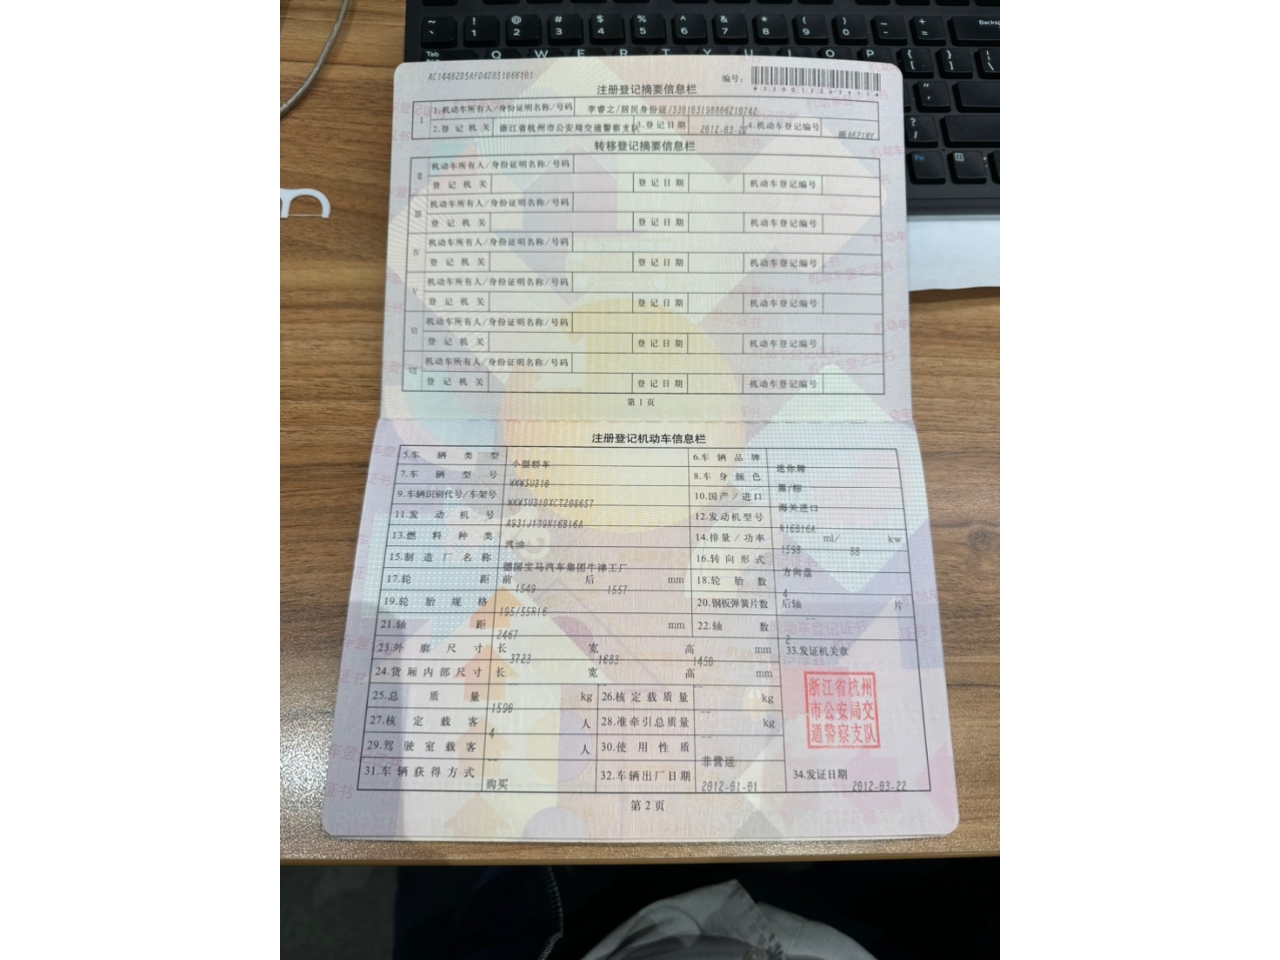 AC1448205AFD4DBS1066101
编号：
注册登记摘要信息栏
I 1.机动车所有人/身份证明名称/号码 李睿之/居民身份证/330103198806210742
2.登记机关 浙江省杭州市公安局交通警察支队 3.登记日期 2012-03-22 4.机动车登记编号
转移登记摘要信息栏
II 机动车所有人/身份证明名称/号码
登记机关 登记日期 机动车登记编号
III 机动车所有人/身份证明名称/号码
登记机关 登记日期 机动车登记编号
IV 机动车所有人/身份证明名称/号码
登记机关 登记日期 机动车登记编号
V 机动车所有人/身份证明名称/号码
登记机关 登记日期 机动车登记编号
VI 机动车所有人/身份证明名称/号码
登记机关 登记日期 机动车登记编号
VII 机动车所有人/身份证明名称/号码
登记机关 登记日期 机动车登记编号
第 1 页
注册登记机动车信息栏
5.车辆类型 小型轿车 6.车辆品牌 迷你牌
7.车辆型号 WMWSU310 8.车身颜色 黑/棕
9.车辆识别代号/车架号 WMWSU310XCT208657 10.国产/进口 海关进口
11.发动机号 A931J139N16B16A 12.发动机型号 N16B16A
13.燃料种类 汽油 14.排量/功率 1598 ml/ 88 kw
15.制造厂名称 德国宝马汽车集团牛津工厂 16.转向形式 方向盘
17.轮距 前 1549 后 1557 mm 18.轮胎数 4
19.轮胎规格 195/55R16 20.钢板弹簧片数 后轴 -- 片
21.轴距 2467 mm 22.轴数 2
23.外廓尺寸 长 3723 宽 1683 高 1450 mm 33.发证机关章
24.货厢内部尺寸 长 -- 宽 -- 高 -- mm
25.总质量 1590 kg 26.核定载质量 -- kg
27.核定载客 4 人 28.准牵引总质量 -- kg
29.驾驶室载客 -- 人 30.使用性质 非营运
31.车辆获得方式 购买 32.车辆出厂日期 2012-01-01 34.发证日期 2012-03-22
浙江省杭州
市公安局交
通警察支队
第 2 页